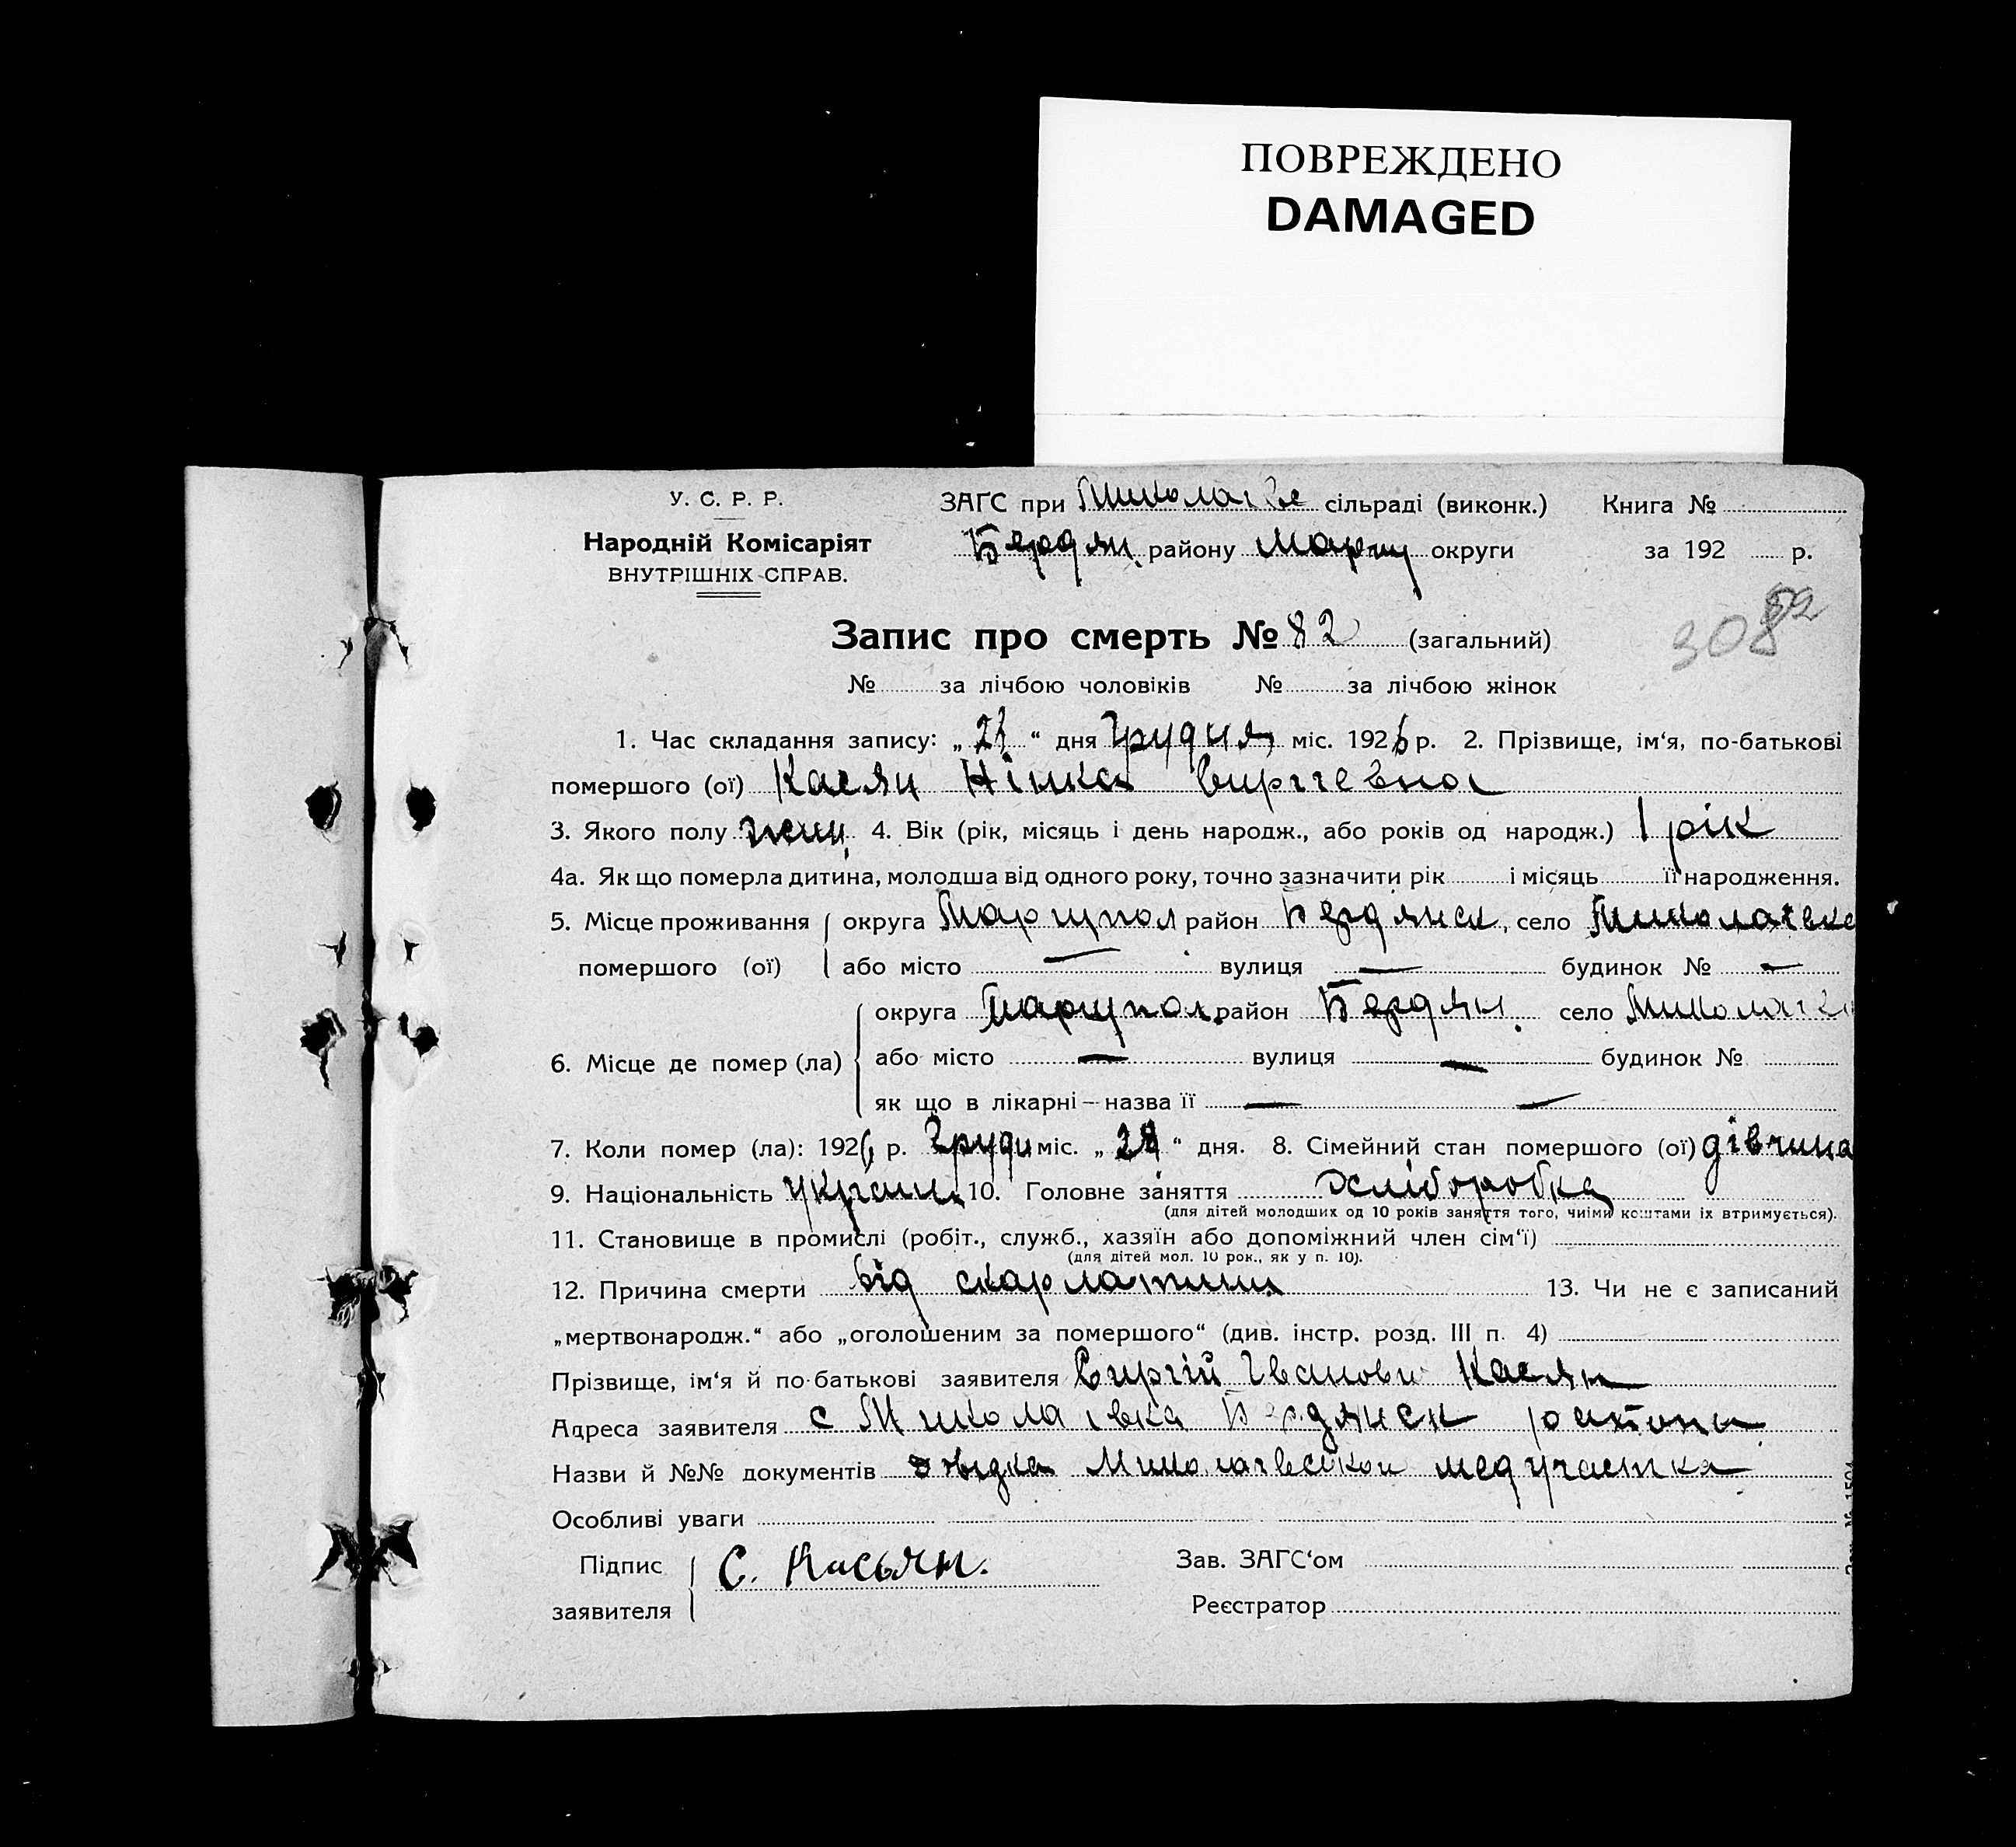 ПОВРЕЖДЕНО
DAMAGED
У. С. Р. Р.
Народній Комісаріят
ВНУТРІШНІХ СПРАВ.
ЗАГС при Миколаїв сільраді (виконк.)
Бердян. району Маріу округи
Книга №
за 192 р.
308
82
Запис про смерть № 82 (загальний)
№ за лічбою чоловіків № за лічбою жінок
1. Час складання запису: „ “ дня Грудня міс. 1926 р. 2. Прізвище, ім‘я, по-батькові
помершого (ої) Касян Нінка Сиргіевна
3. Якого полу жін. 4. Вік (рік, місяць і день народж., або років од народж.) 1 рік
4а. Як що померла дитина, молодша від одного року, точно зазначити рік і місяць її народження.
5. Місце проживання округа Маріупол район Бердянск, село Миколаевка
помершого (ої) або місто — вулиця — будинок № —
округа Маріупол. район Бердян. село Миколаїв
6. Місце де помер (ла) або місто — вулиця — будинок №
як що в лікарні – назва її — —
7. Коли помер (ла): 1926 р. Грудн міс. „ “ дня. 8. Сімейний стан помершого (ої) дівчина
9. Національність україн. 10. Головне заняття хліборобка
(для дітей молодших од 10 років заняття того, чиїми коштами їх втримується).
11. Становище в промислі (робіт., служб., хазяїн або допоміжний член сім‘ї)
(для дітей мол. 10 рок., як у п. 10).
12. Причина смерти від скарлатини 13. Чи не є записаний
„мертвонародж.“ або „оголошеним за помершого“ (див. інстр. розд. III п. 4)
Прізвище, ім‘я й по-батькові заявителя Сиргій Іванови Касян
Адреса заявителя с Миколаівка Бердянск району
Назви й №№ документів довідка Миколаевськои медучастка
Особливі уваги
Підпис заявителя С. Касьян.
Зав. ЗАГС‘ом
Реєстратор